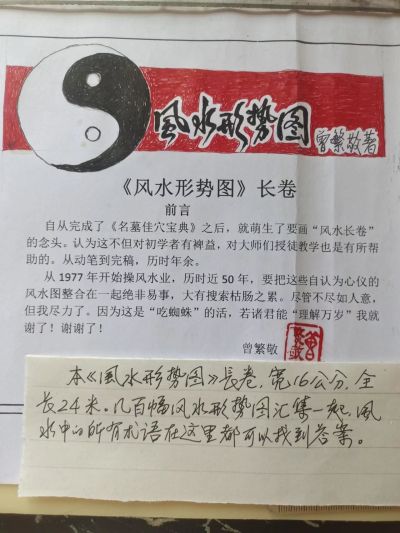 風水形势图
曾繁敬著
《风水形势图》长卷
前言
自从完成了《名墓佳穴宝典》之后，就萌生了要画“风水长卷”
的念头。认为这不但对初学者有裨益，对大师们授徒教学也是有所帮
助的。从动笔到完稿，历时年余。
从 1977 年开始操风水业，历时近 50 年，要把这些自认为心仪的
风水图整合在一起绝非易事，大有搜索枯肠之累。尽管不尽如人意，
但我尽力了。因为这是“吃蜘蛛”的活，若诸君能“理解万岁”我就
谢了！谢谢了！
曾繁敬
本《風水形势图》長卷，宽16公分，全
长24米。几百幅风水形势图汇集一起，風
水中的所有术语在这里都可以找到答案。